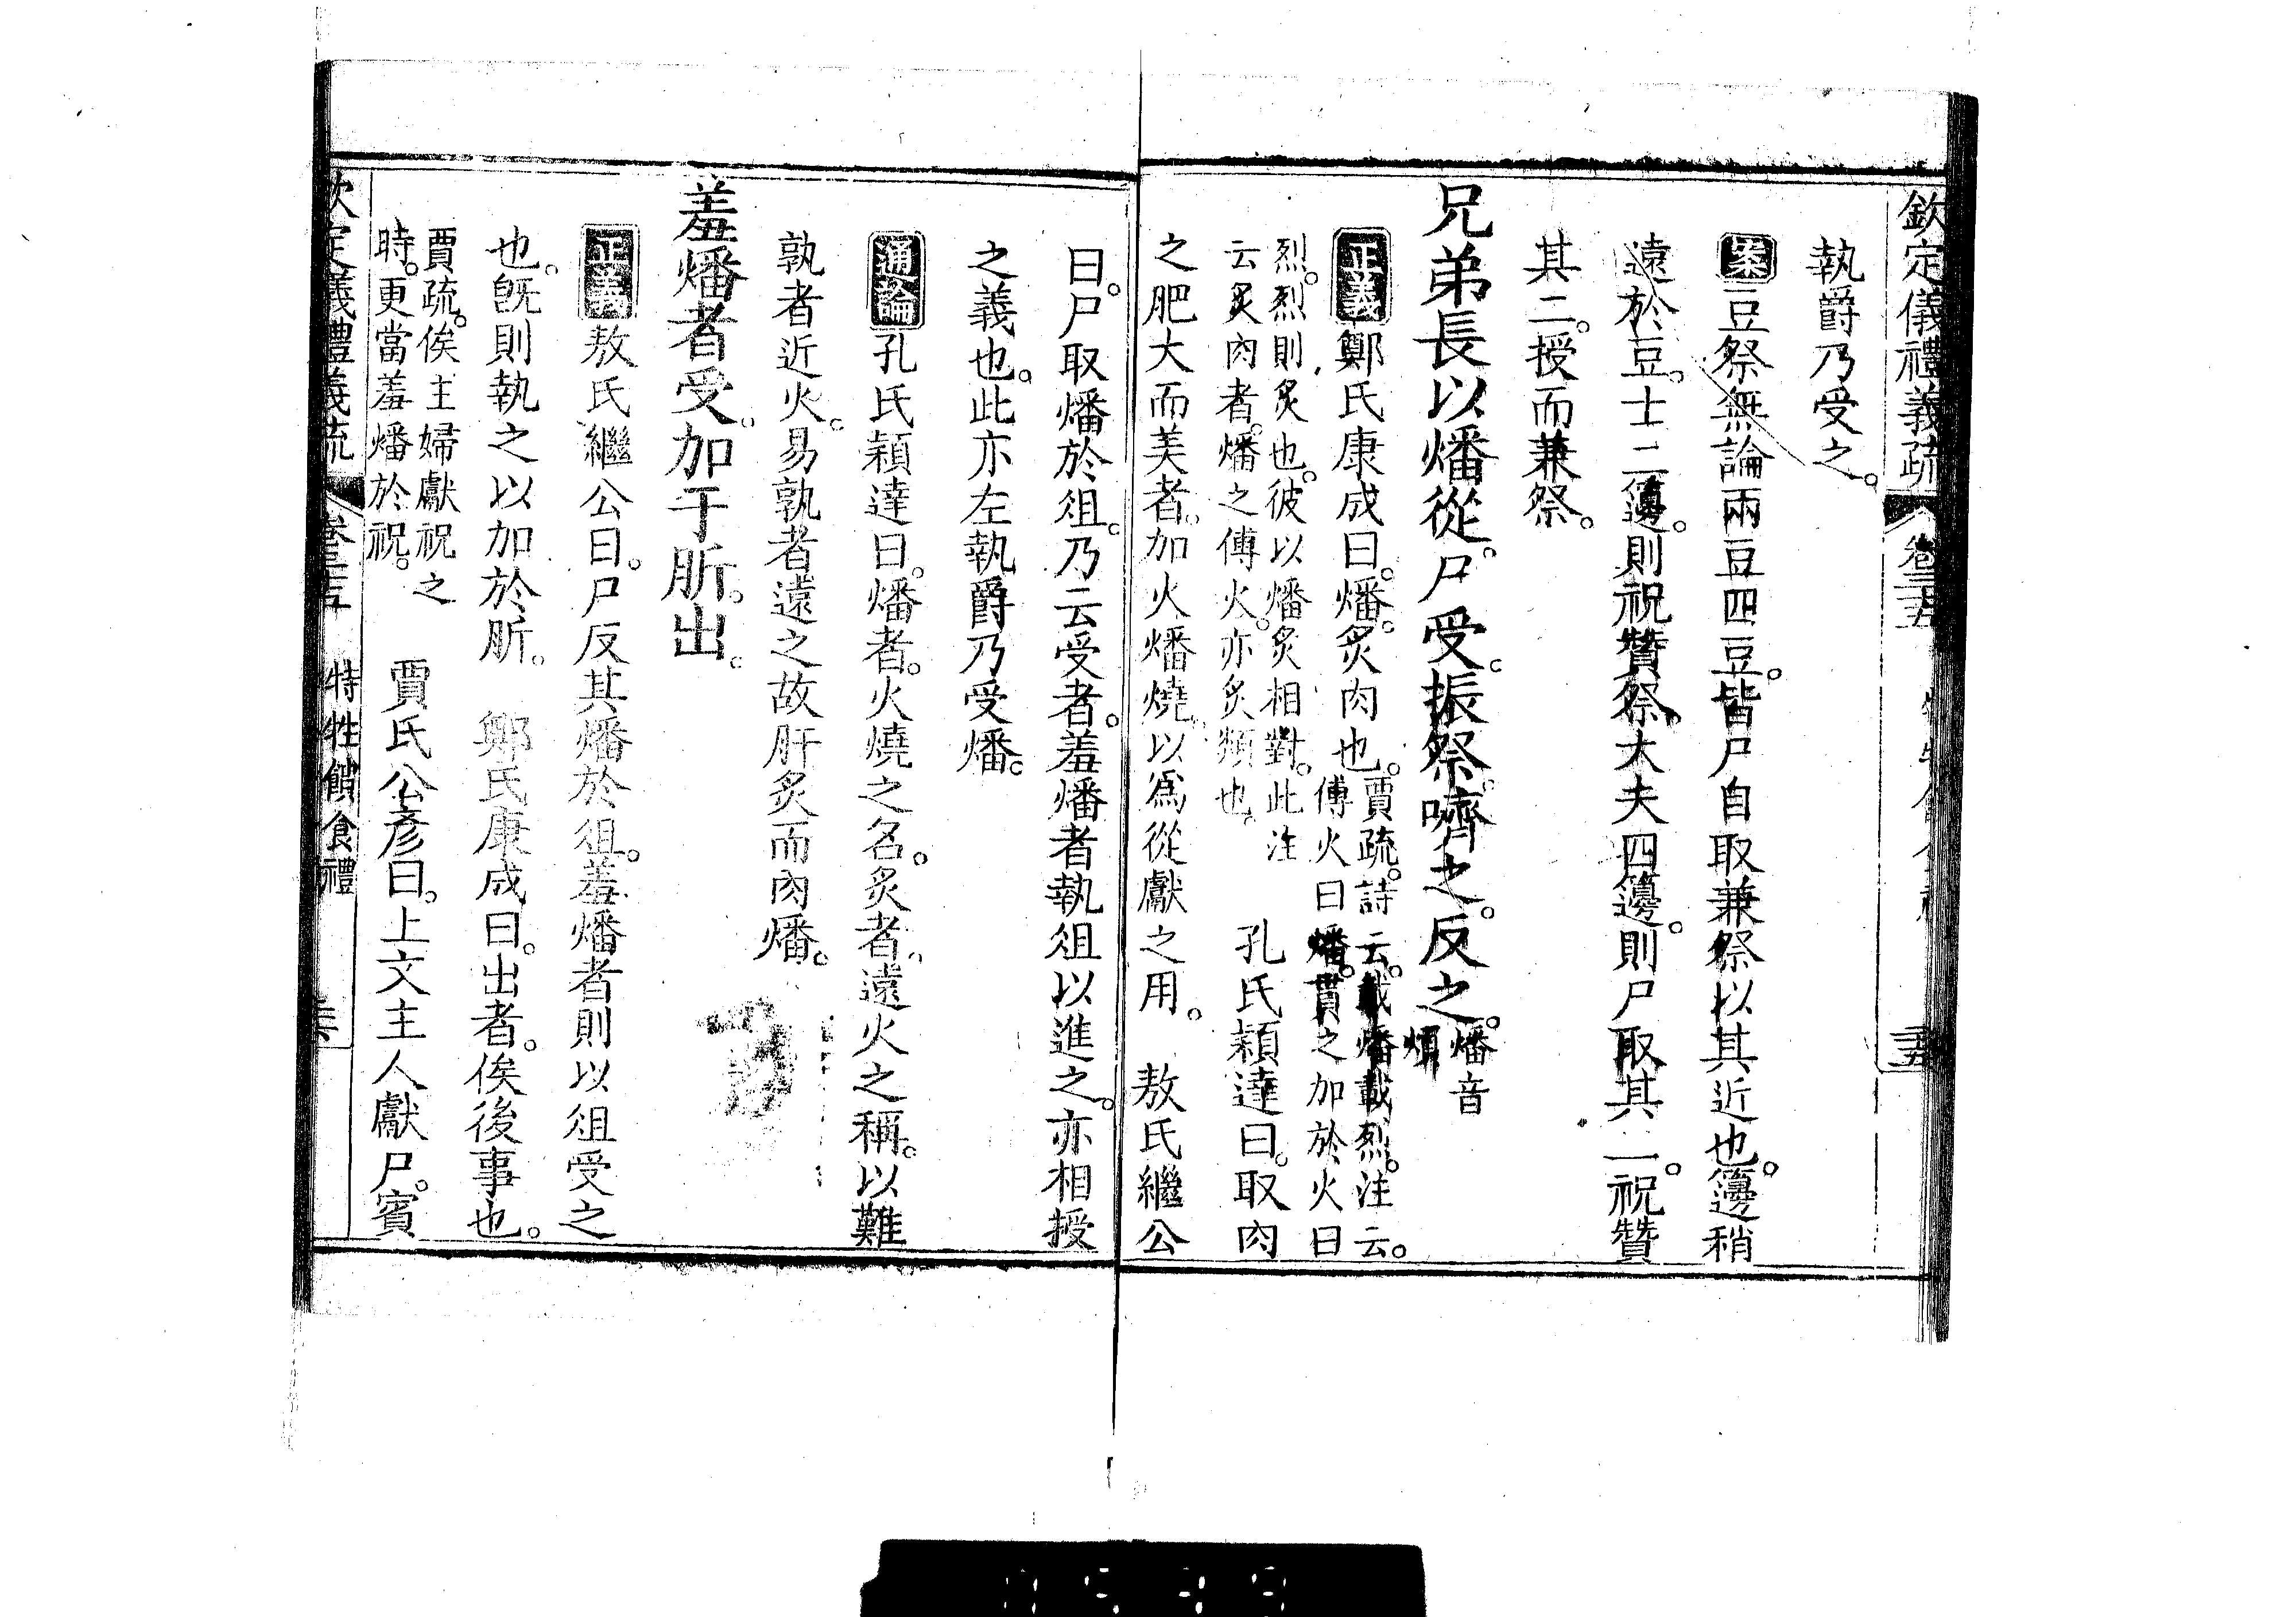 欽定儀禮義疏 卷三五
執爵乃受之。
案豆祭無論兩豆四豆。皆尸自取兼祭以其近也。籩稍
遠於豆。士二籩。則祝贊祭。大夫四籩。則尸取其二。祝贊
其二。授而兼祭。
兄弟長以燔從。尸受。振祭嚌之。反之。燔音
煩
正義鄭氏康成曰。燔。炙肉也。賈疏。詩云。載燔載烈。注云。
傅火曰燔。貫之加於火曰
烈。烈則炙也。彼以燔炙相對。此注
云炙肉者。燔之傅火。亦炙類也。
孔氏穎達曰。取肉
之肥大而美者。加火燔燒。以爲從獻之用。 敖氏繼公
曰。尸取燔於俎。乃云受者。羞燔者執俎以進之。亦相授
之義也。此亦左執爵乃受燔。
通論孔氏穎達曰。燔者。火燒之名。炙者。遠火之稱。以難
孰者近火。易孰者遠之故肝炙而肉燔。
羞燔者受。加于肵。出。
正義敖氏繼公曰。尸反其燔於俎。羞燔者則以俎受之
也。旣則執之以加於肵。 鄭氏康成曰。出者。俟後事也。
賈疏。俟主婦獻祝之
時。更當羞燔於祝。
賈氏公彥曰。上文主人獻尸。賓
欽定儀禮義疏 特牲饋食禮